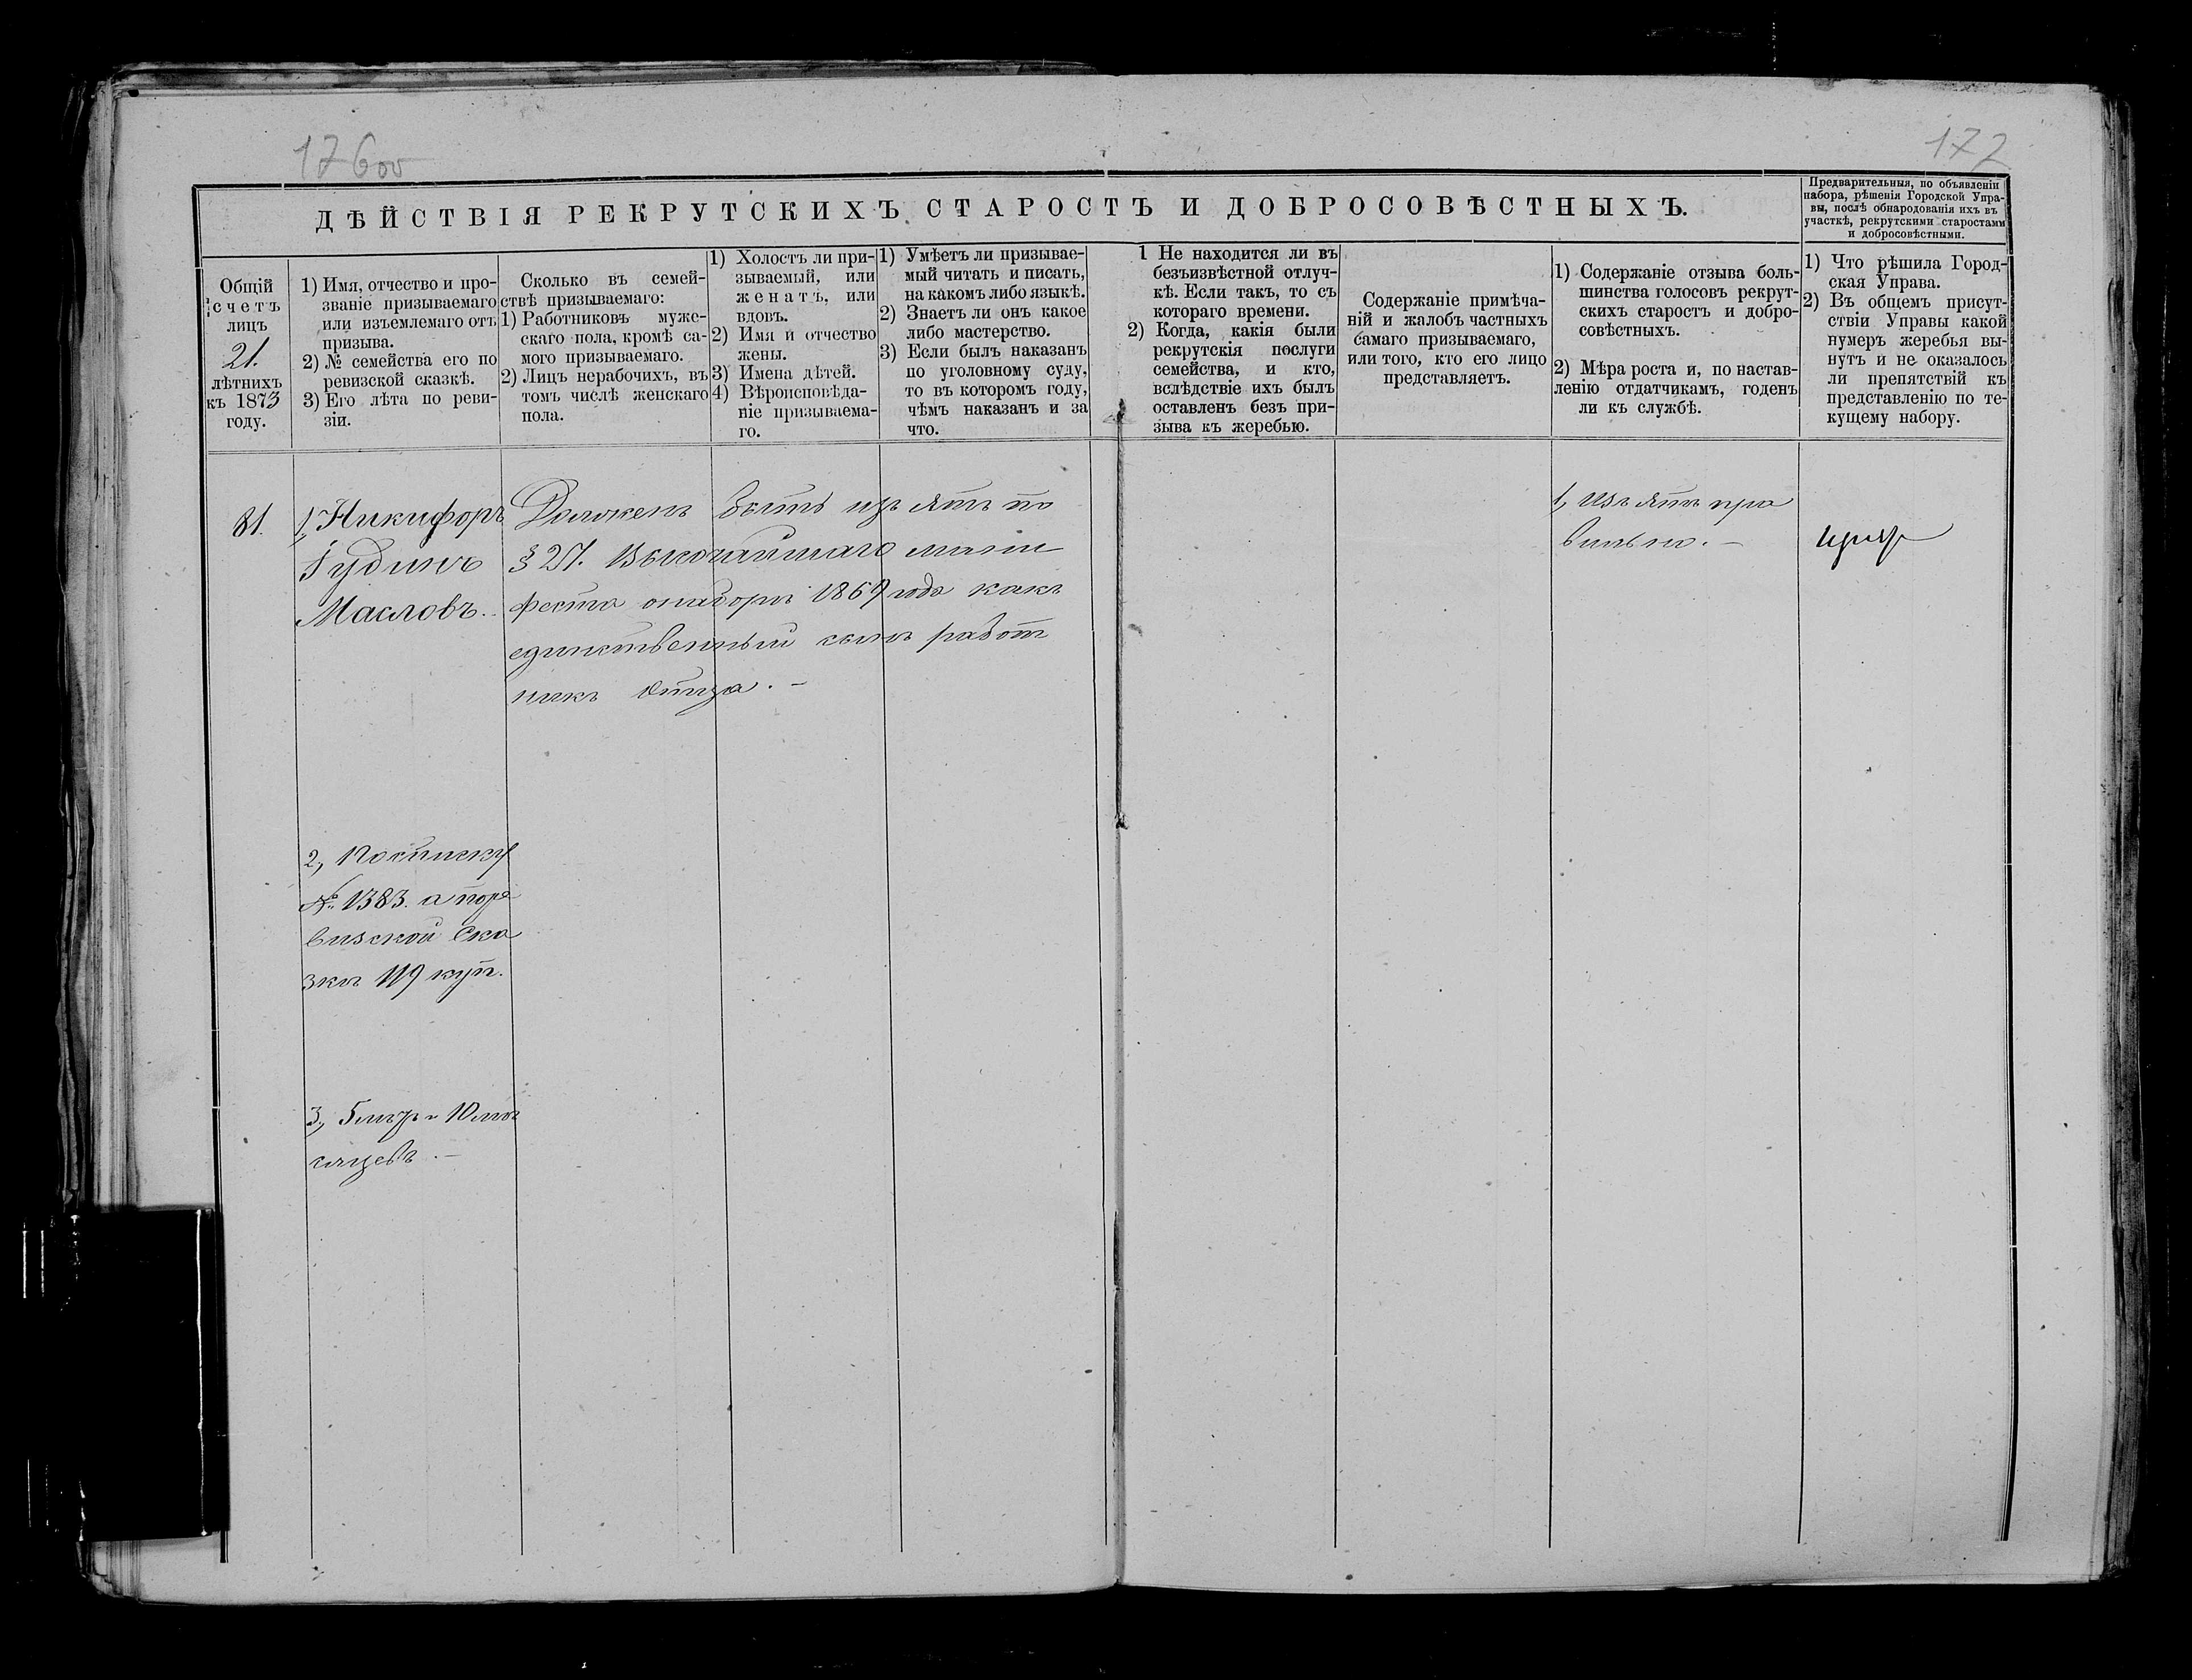 176об
172
ДѢЙСТВІЯ РЕКРУТСКИХЪ СТАРОСТЪ И ДОБРОСОВѢСТНЫХЪ.
Предварительныя, по объявленіи
набора, рѣшенія Городской Упра-
вы, послѣ обнародованія ихъ въ
участкѣ, рекрутскими старостами
и добросовѣстными.
Общій
счетъ
лицъ
21.
лѣтнихъ
къ 1873
году.
1) Имя, отчество и про-
званіе призываемаго
или изъемлемаго отъ
призыва.
2) № семейства его по
ревизской сказкѣ.
3) Его лѣта по реви-
зіи.
Сколько въ семей-
ствѣ призываемаго:
1) Работниковъ муже-
скаго пола, кромѣ са-
мого призываемаго.
2) Лицъ нерабочихъ, въ
томъ числѣ женскаго
пола.
1) Холостъ ли при-
зываемый, или
женатъ, или
вдовъ.
2) Имя и отчество
жены.
3) Имена дѣтей.
4) Вѣроисповѣда-
ніе призываема-
го.
1) Умѣетъ ли призывае-
мый читать и писать,
на какомъ либо языкѣ.
2) Знаетъ ли онъ какое
либо мастерство.
3) Если былъ наказанъ
по уголовному суду,
то въ которомъ году,
чѣмъ наказанъ и за
что.
1 Не находится ли въ
безъизвѣстной отлуч-
кѣ. Если такъ, то съ
котораго времени.
2) Когда, какія были
рекрутскія послуги
семейства, и кто,
вслѣдствіе ихъ былъ
оставленъ безъ при-
зыва къ жеребью.
Содержаніе примѣча-
ній и жалобъ частныхъ
самаго призываемаго,
или того, кто его лицо
представляетъ.
1) Содержаніе отзыва боль-
шинства голосовъ рекрут-
скихъ старостъ и добро-
совѣстныхъ.
2) Мѣра роста и, по настав-
ленію отдатчикамъ, годенъ
ли къ службѣ.
1) Что рѣшила Город-
ская Управа.
2) Въ общемъ присут-
ствіи Управы какой
нумеръ жеребья вы-
нутъ и не оказалось
ли препятствій къ
представленію по те-
кущему набору.
81.
1, Никифоръ
Гудинъ
Масловъ.
Долженъ быть изъятъ по
§ 27. Высочайшаго мани
феста о наборѣ 1869 года какъ
единственный сынъ работ
никъ Отца. –
1, Изъятъ пра
вильно. –
2, По списку
№ 1383. а по ре
визской Ска
зкѣ 119 куп.
3, 5 лѣтъ и 10 мѣ
сяцевъ. –